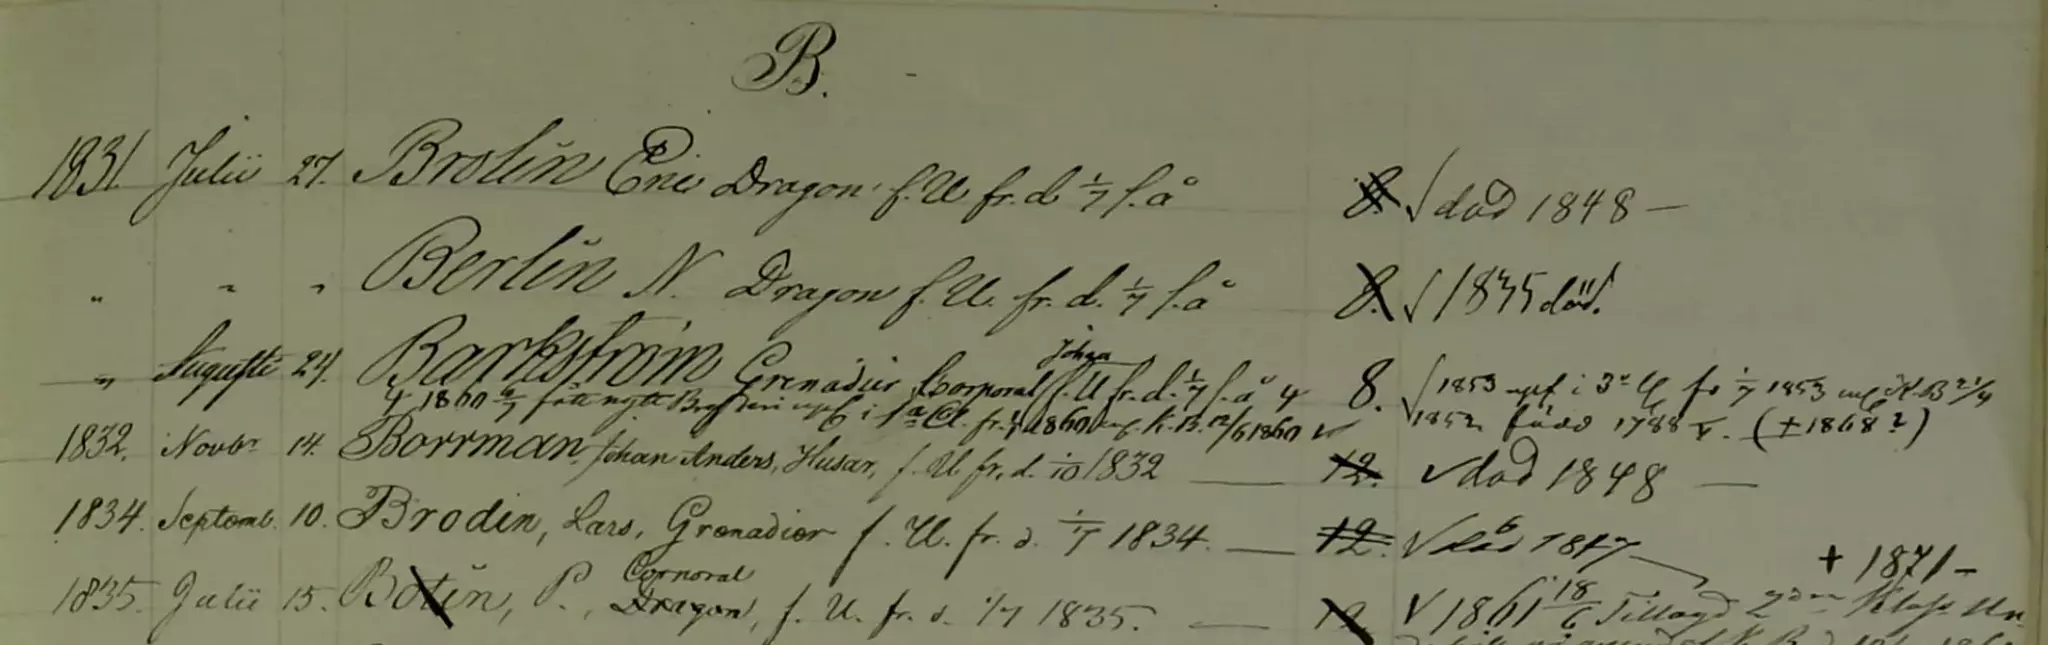 B.
1831. Julii 27. Brolin Eric Dragon f. U fr. d. 1/7 s. å 8. √ död 1848 —
" " " Berlin N. Dragon f. U. fr. d. 1/7 s. å 8. √ 1835 död.
" Augusti 24. Barkström Johan Grenadier Corporal f. U fr. d. 1/7 s. å 8. √ 1853 i 3e fr 1/7 1853 K. B 21/4
1860 6/7 i 1a Cl. fr. 1860 K. B. 12/6 1860 1852 född 1788 (+ 1868?)
1832. Novbr 14. Borrman, Johan Anders, Husar, f. U. fr. d. 1/10 1832 — 12. √ död 1848 —
1834. Septemb. 10. Brodin, Lars, Grenadier f. U. fr. d. 1/7 1834. — 12. √ död 1847
+ 1871 –
1835. Julii 15. Botin, P., Corporal Dragon, f. U. fr. d. 1/7 1835. — √ 1861 18/6 Tillagd 2dra Klass